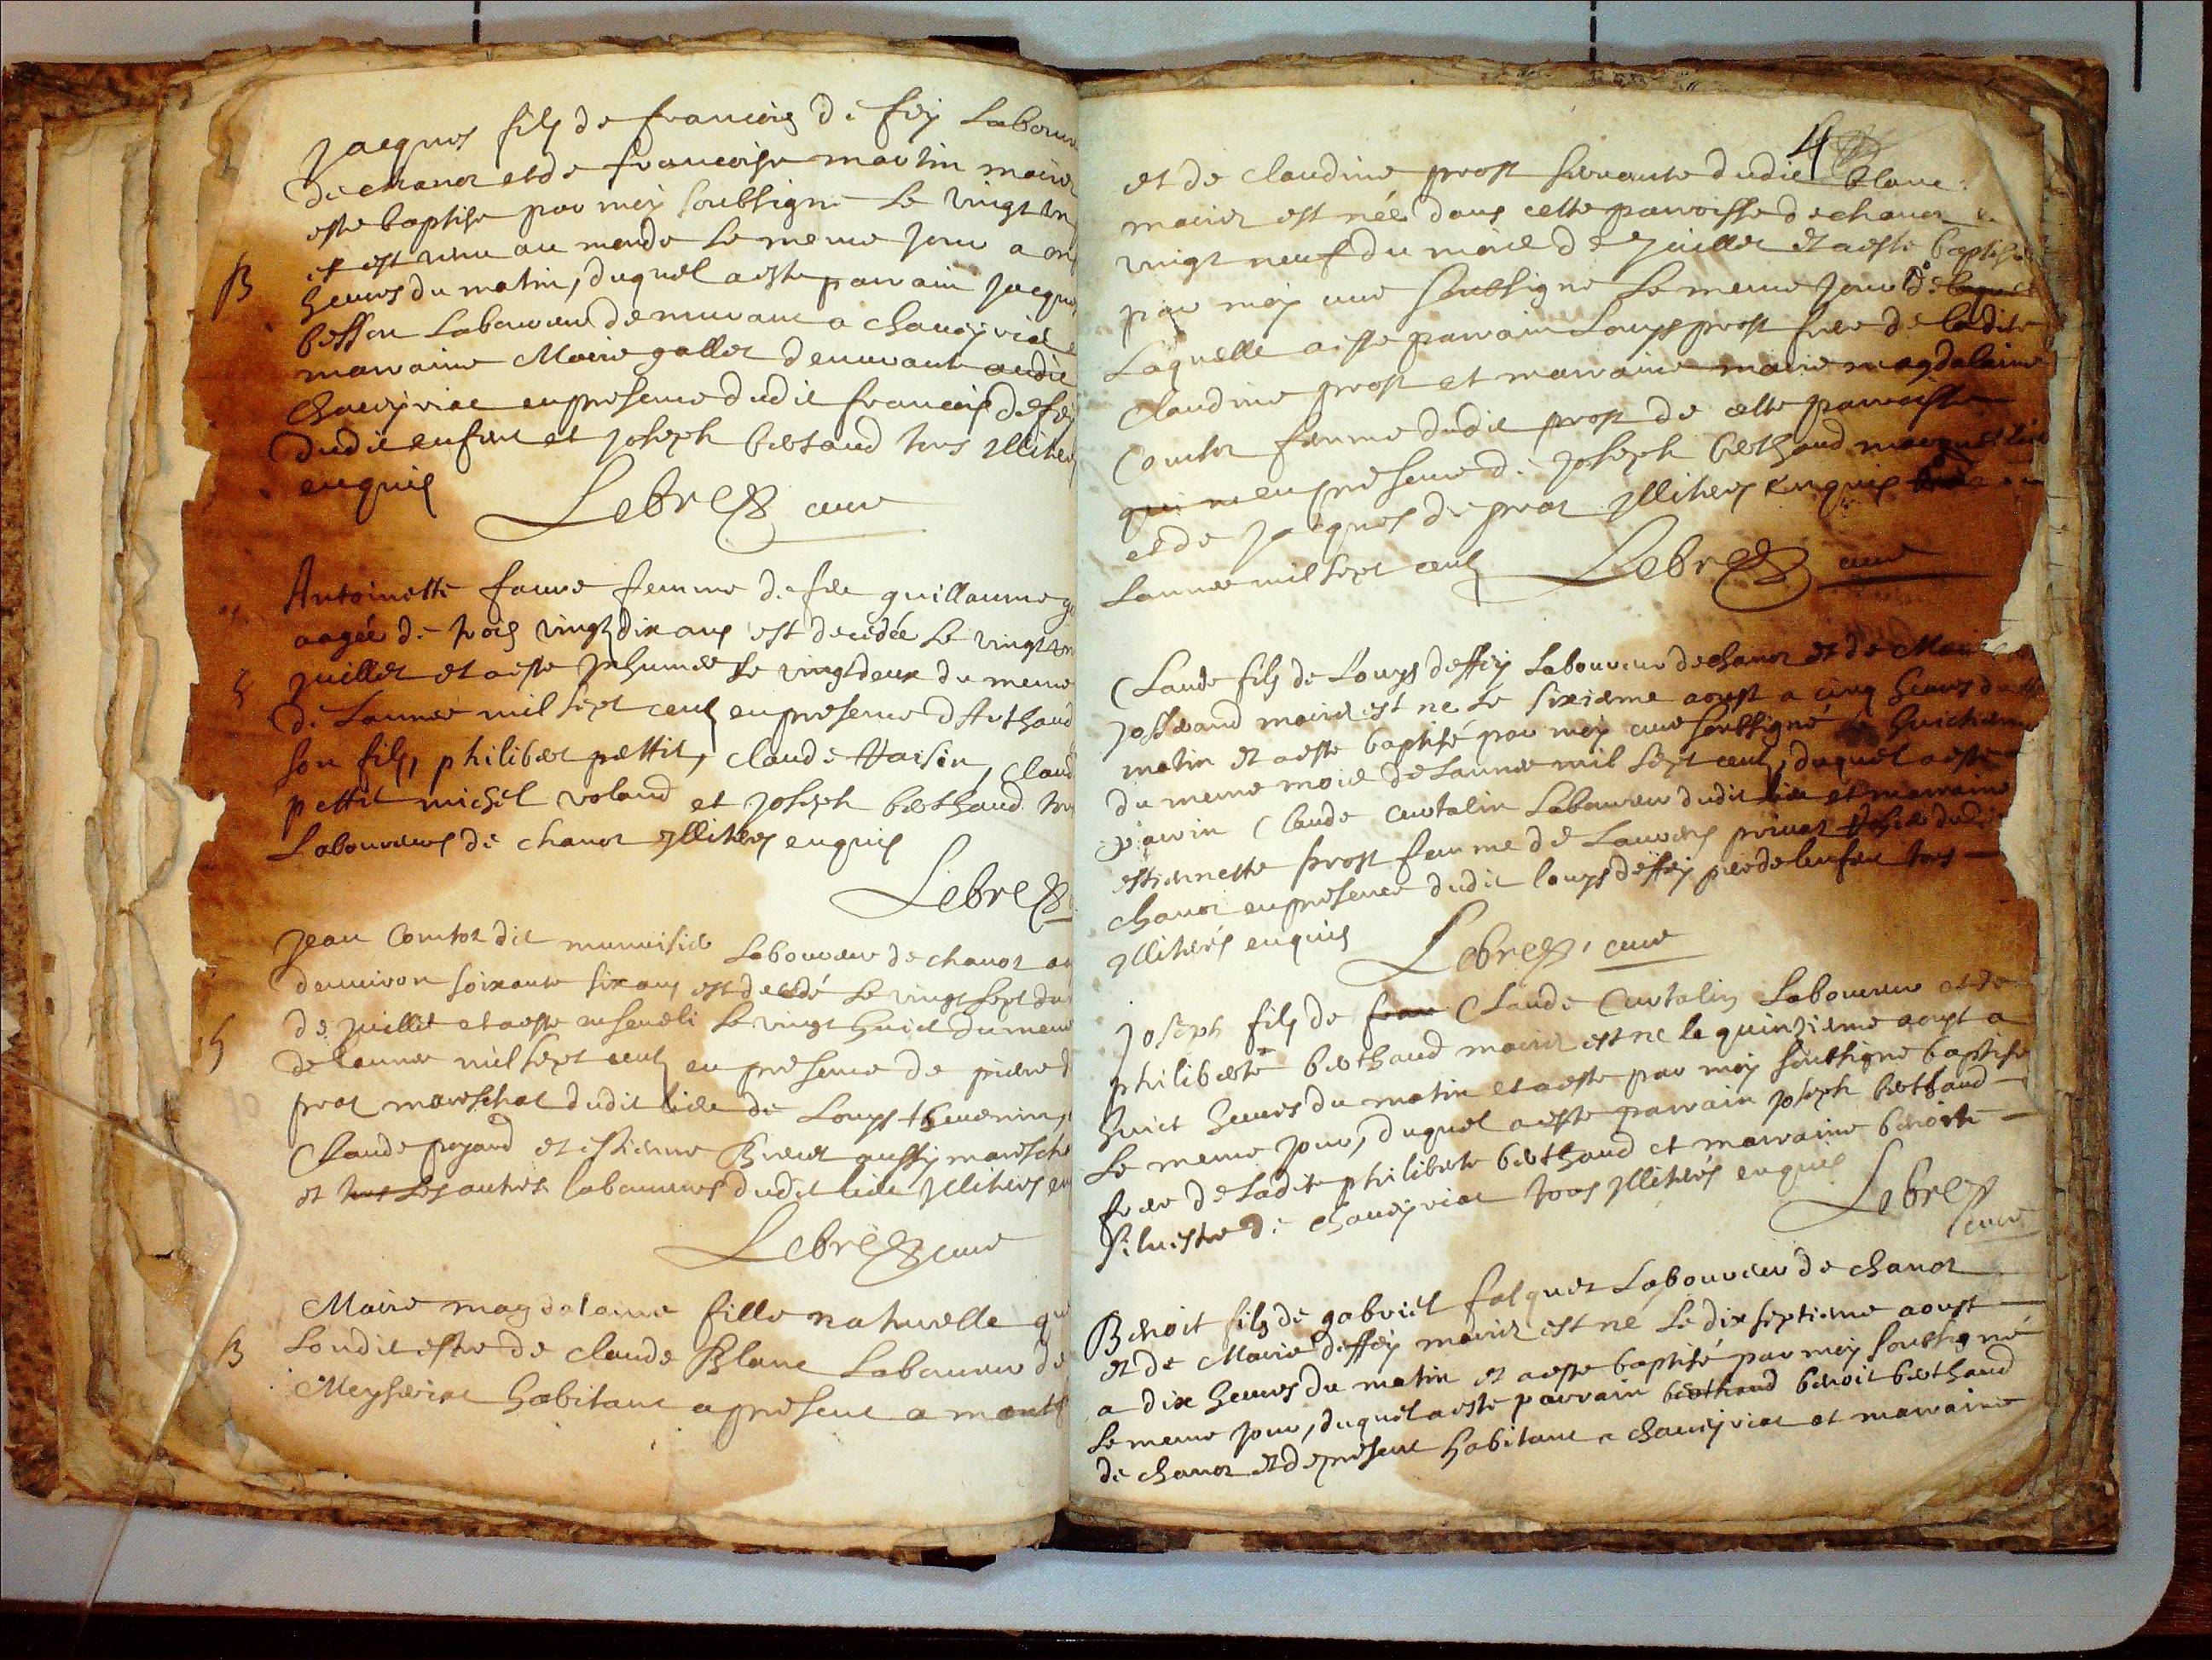 Jacques fils de francois de fey Laboure
de chanoz et de francoise martin maries
este baptise par moy soubsigne le vingt un
et est venu au monde le meme jour a on
B
heures du matin, duquel a este parrain Jacques
besson Laboureur demeurant a chaveyriat
marraine Marie gallet demeurante audit
Chaveyriat en presence dudit francois de fey
dudit enfant et Joseph bertaud tous illiter
enquis
Lebrez cure
Antoinette favre femme de feu guillaume
aagée de trois vingt dix ans est decedée le vingt
S
juillet et a este inhumée le vingt deux du meme
de Lannee mil sept cent en presence d'Arthaud
son fils, philiber pettit, claude Voisin, claud
pettit michel voland et Joseph berthaud tou
Laboureurs de chanoz illiteres enquis
Lebrez
Jean Comtet dit Laboureur de chanoz
denviron soixante six ans est decedé le vingt sept du
S
de juillet et a este enseveli le vingt huict du meme
de lannee mil sept cent en presence de pierre
prat mareschal dudit lieu de Louys thevenin,
Claude poyard et estienne Brevet aussy maresch
et tous les autres laboureurs dudit lieu illiteres en
Lebrez cure
Marie magdelaine fille naturelle qu
B
Londit estre de claude Blanc Laboureur de
Meyseriat habitant a present a mont
4
et de claudine prost servante dudit blanc
maries est née dans cette parroisse de chanoz
vingt neuf du mois de juillet et a este baptisée
par moy cure soubsigne le meme jour de laquel
Laquelle a este parrain Louys prost frere de ladite
Claudine prost et marraine marie magdelaine
Comtet femme dudit prost de cette parroisse
qui en presence de Joseph berthaud
et de Jacques de prat illiteres enquis
Lannee mil sept cent Lebrez cure
Claude fils de Louys deffey Laboureur de chanoz et de Marie
Josserand maries est ne le sixieme aoust a cinq heures du
matin et a este baptisé par moy cure soubsigné le huictieme
du meme mois de lannee mil sept cent, duquel a este
parrin Claude Curtalin Laboureur dudit lieu et marraine
estiennette prost femme de Laurens privat dudit
chanoz en presence dudit louys deffey pere de lenfant tous
illiterés enquis Lebrez cure
Joseph fils de fran Claude Curtalin Laboureur et de
philiberte berthaud maries est ne le quinsieme aoust a
huict heures du matin et a este par moy soubsigne baptise
Le meme jour, duquel a este parrain Joseph berthaud
frere de ladite philiberte berthaud et marraine benoite
silvestre de chaveyriat tous illiterés enquis
Lebrez
cure
Benoit fils de gabriel falquet Laboureur de chanoz
et de Marie deffey maries est né le dix septieme aoust
a dix heures du matin et a este baptisé par moy soubsigné
Le meme jour, duquel a este parrain berthaud benoit berthaud
de chanoz et de present habitant a chaveyriat et marraine